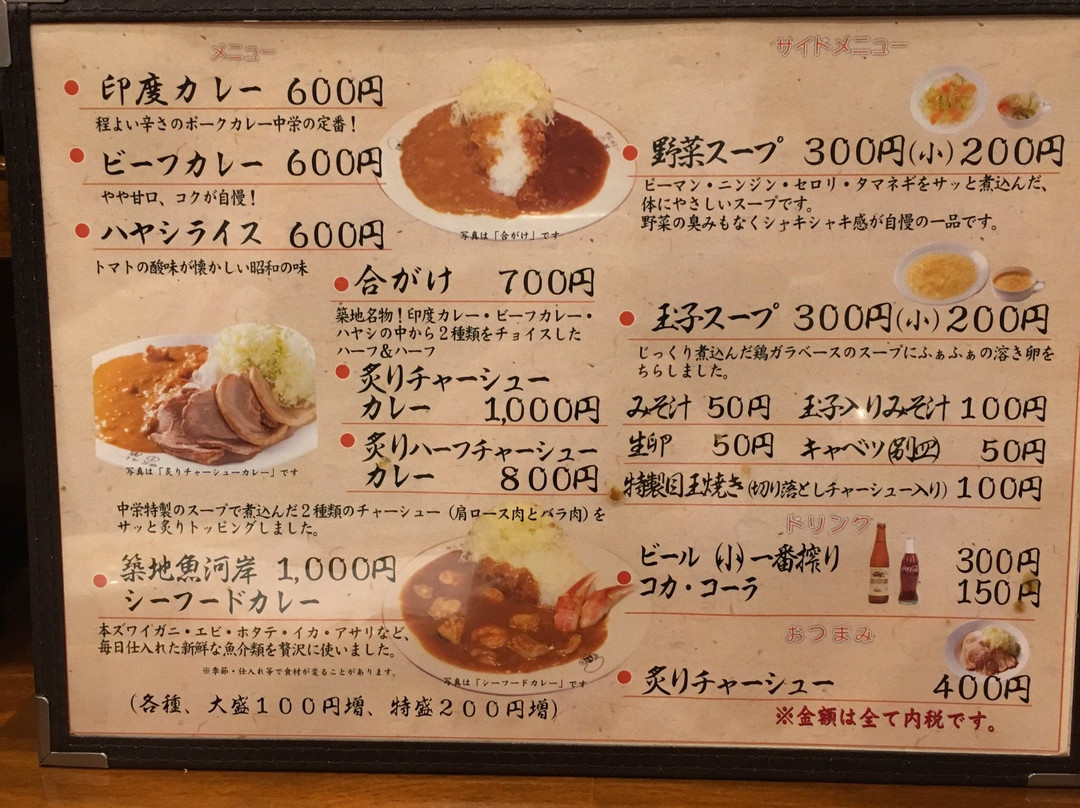 メニュー
印度カレー 600円
程よい辛さのポークカレー中栄の定番！
ビーフカレー 600円
やや甘口、コクが自慢！
ハヤシライス 600円
トマトの酸味が懐かしい昭和の味
写真は「合がけ」です
合がけ 700円
築地名物！印度カレー・ビーフカレー・
ハヤシの中から２種類をチョイスした
ハーフ&ハーフ
炙りチャーシュー
カレー 1,000円
炙りハーフチャーシュー
カレー 800円
写真は「炙りチャーシューカレー」です
中栄特製のスープで煮込んだ２種類のチャーシュー（肩ロース肉とバラ肉）を
サッと炙りトッピングしました。
築地魚河岸 1,000円
シーフードカレー
本ズワイガニ・エビ・ホタテ・イカ・アサリなど、
毎日仕入れた新鮮な魚介類を贅沢に使いました。
※季節・仕入れ等で食材が変ることがあります。
写真は「シーフードカレー」です
（各種、大盛１００円増、特盛２００円増）
サイドメニュー
野菜スープ 300円(小)200円
ピーマン・ニンジン・セロリ・タマネギをサッと煮込んだ、
体にやさしいスープです。
野菜の臭みもなくシャキシャキ感が自慢の一品です。
玉子スープ 300円(小)200円
じっくり煮込んだ鶏ガラベースのスープにふぁふぁの溶き卵を
ちらしました。
みそ汁 50円 玉子入りみそ汁 100円
生卵 50円 キャベツ(別皿) 50円
特製目玉焼き(切り落としチャーシュー入り) 100円
ドリンク
ビール (小) 一番搾り 300円
コカ・コーラ 150円
おつまみ
炙りチャーシュー 400円
※金額は全て内税です。